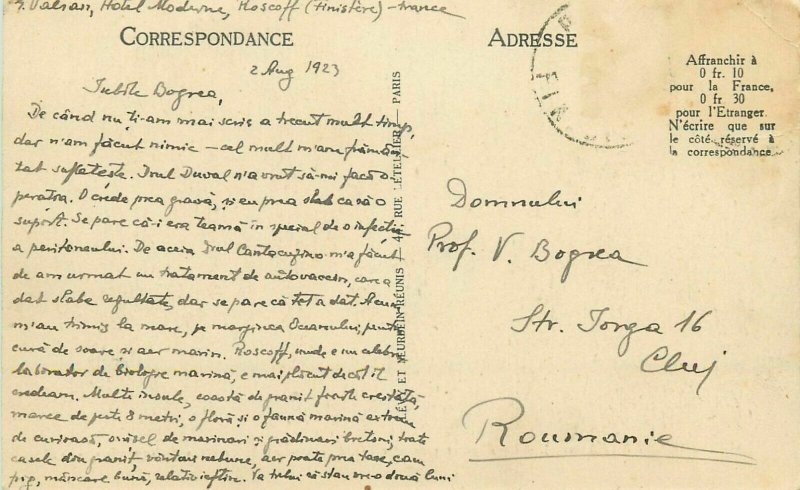 G. Valsan, Hotel Moderne, Roscoff (Finistère) - France
CORRESPONDANCE
ADRESSE
Affranchir à
0 fr. 10
pour la France,
0 fr 30
pour l'Etranger
N'écrire que sur
le côté réservé à
la correspondance
2 Aug 1923
Iubite Bogrea,
De când nu ți-am mai scris a trecut mult timp,
dar n'am făcut nimic - cel mult m'am frămân-
tat sufletește. Drul Duval n'a vrut să-mi facă o-
perația. O crede prea gravă, și eu prea slab ca să o
suport. Se pare că-i era teamă în special de o infecție
a peritoneului. De aceia Drul Cantacuzino m'a făcut
de am urmat un tratament de autovaccin, care a
dat slabe rezultate, dar se pare că tot a dat. Acum
m'au trimis la mare, pe marginea Oceanului, pentru
cură de soare și aer marin. Roscoff, unde e un celebru
laborator de biologie marină, e mai plăcut decât îl
credeam. Multe insule, coastă de granit foarte crestată,
maree de peste 8 metri, o floră și o faună marină extrem
de curioasă, orășel de marinari și grădinari bretoni, toate
casele din granit, vânturi nebune, aer poate prea tare, cam
frig, mâncare bună, relativ ieftin. Va trebui să stau vre-o două luni
LÉVY ET NEURDEIN RÉUNIS - 44, RUE LETELLIER - PARIS
Domnului
Prof. V. Bogrea
Str. Iorga 16
Cluj
Roumanie